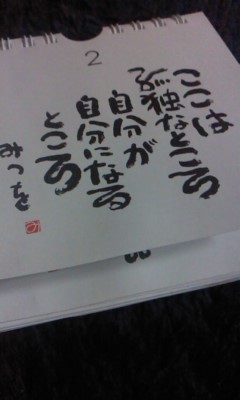 2
ここは
孤独なところ
自分が
自分になる
ところ
みつを